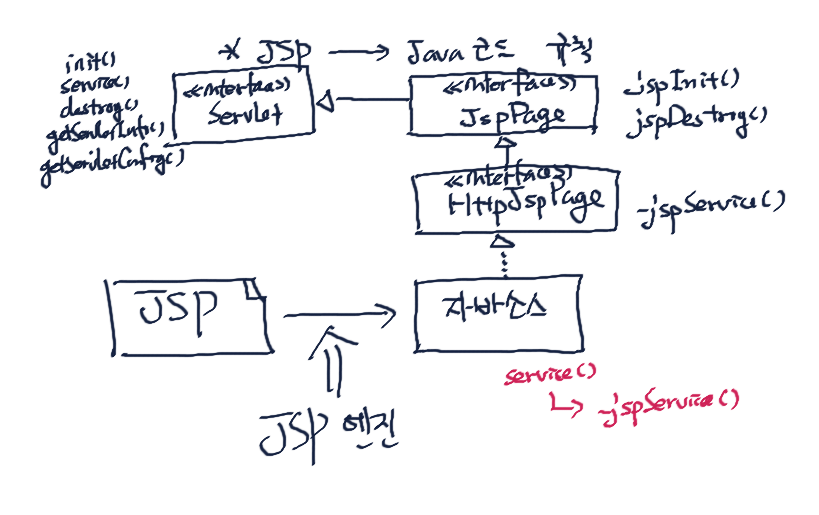 * JSP → Java 코드 규칙
init()
service()
destroy()
getServletInfo()
getServletConfig()
<<interface>>
Servlet
<<interface>>
JspPage
jspInit()
jspDestroy()
<<interface>>
HttpJspPage
_jspService()
JSP
자바소스
service()
↳ _jspService()
JSP 엔진